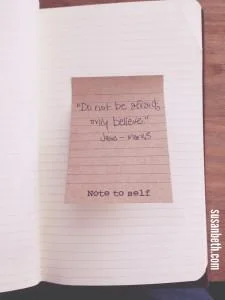 "Do not be afraid;
only believe."
Jesus - Mark 5
Note to self
susanbeth.com